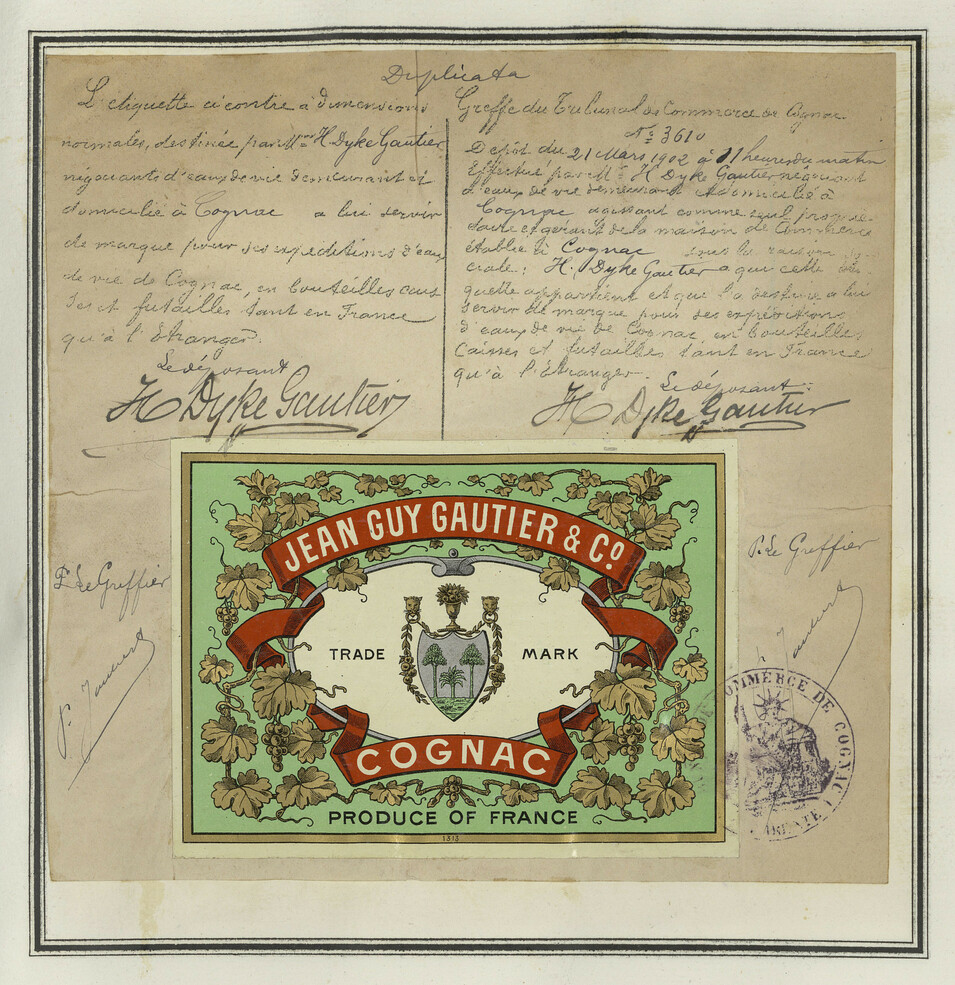 Duplicata
L'étiquette ci contre à dimensions
normales, destinée par Mr H. Dyke Gautier
négociants d'eaux de vie demeurant et
domicilié à Cognac a lui servir
de marque pour ses expeditions d'eaux
de vie de Cognac, en bouteilles cais
ses et futailles tant en France
qu'à l'étranger.
Le déposant
H Dyke Gautier
Greffe du Tribunal de Commerce de Cognac
N° 3610
Depôt du 21 Mars 1902 à 11 heures du matin
Effectué par Mr H Dyke Gautier negociant
d'eaux de vie demeurant et domicilié à
Cognac agissant comme seul proprié
taire et gérant de la maison de Commerce
établie à Cognac sous la raison so
ciale: H. Dyke Gautier a qui cette éti
quette appartient et que l'a destine a lui
servir de marque pour ses expeditions
d'eaux de vie de Cognac en bouteilles
Caisses et futailles tant en France
qu'à l'Étranger.
Le déposant:
H Dyke Gautier
P. Le Greffier
P. Le Greffier
JEAN GUY GAUTIER & Co.
TRADE MARK
COGNAC
PRODUCE OF FRANCE
1313
COMMERCE DE COGNAC